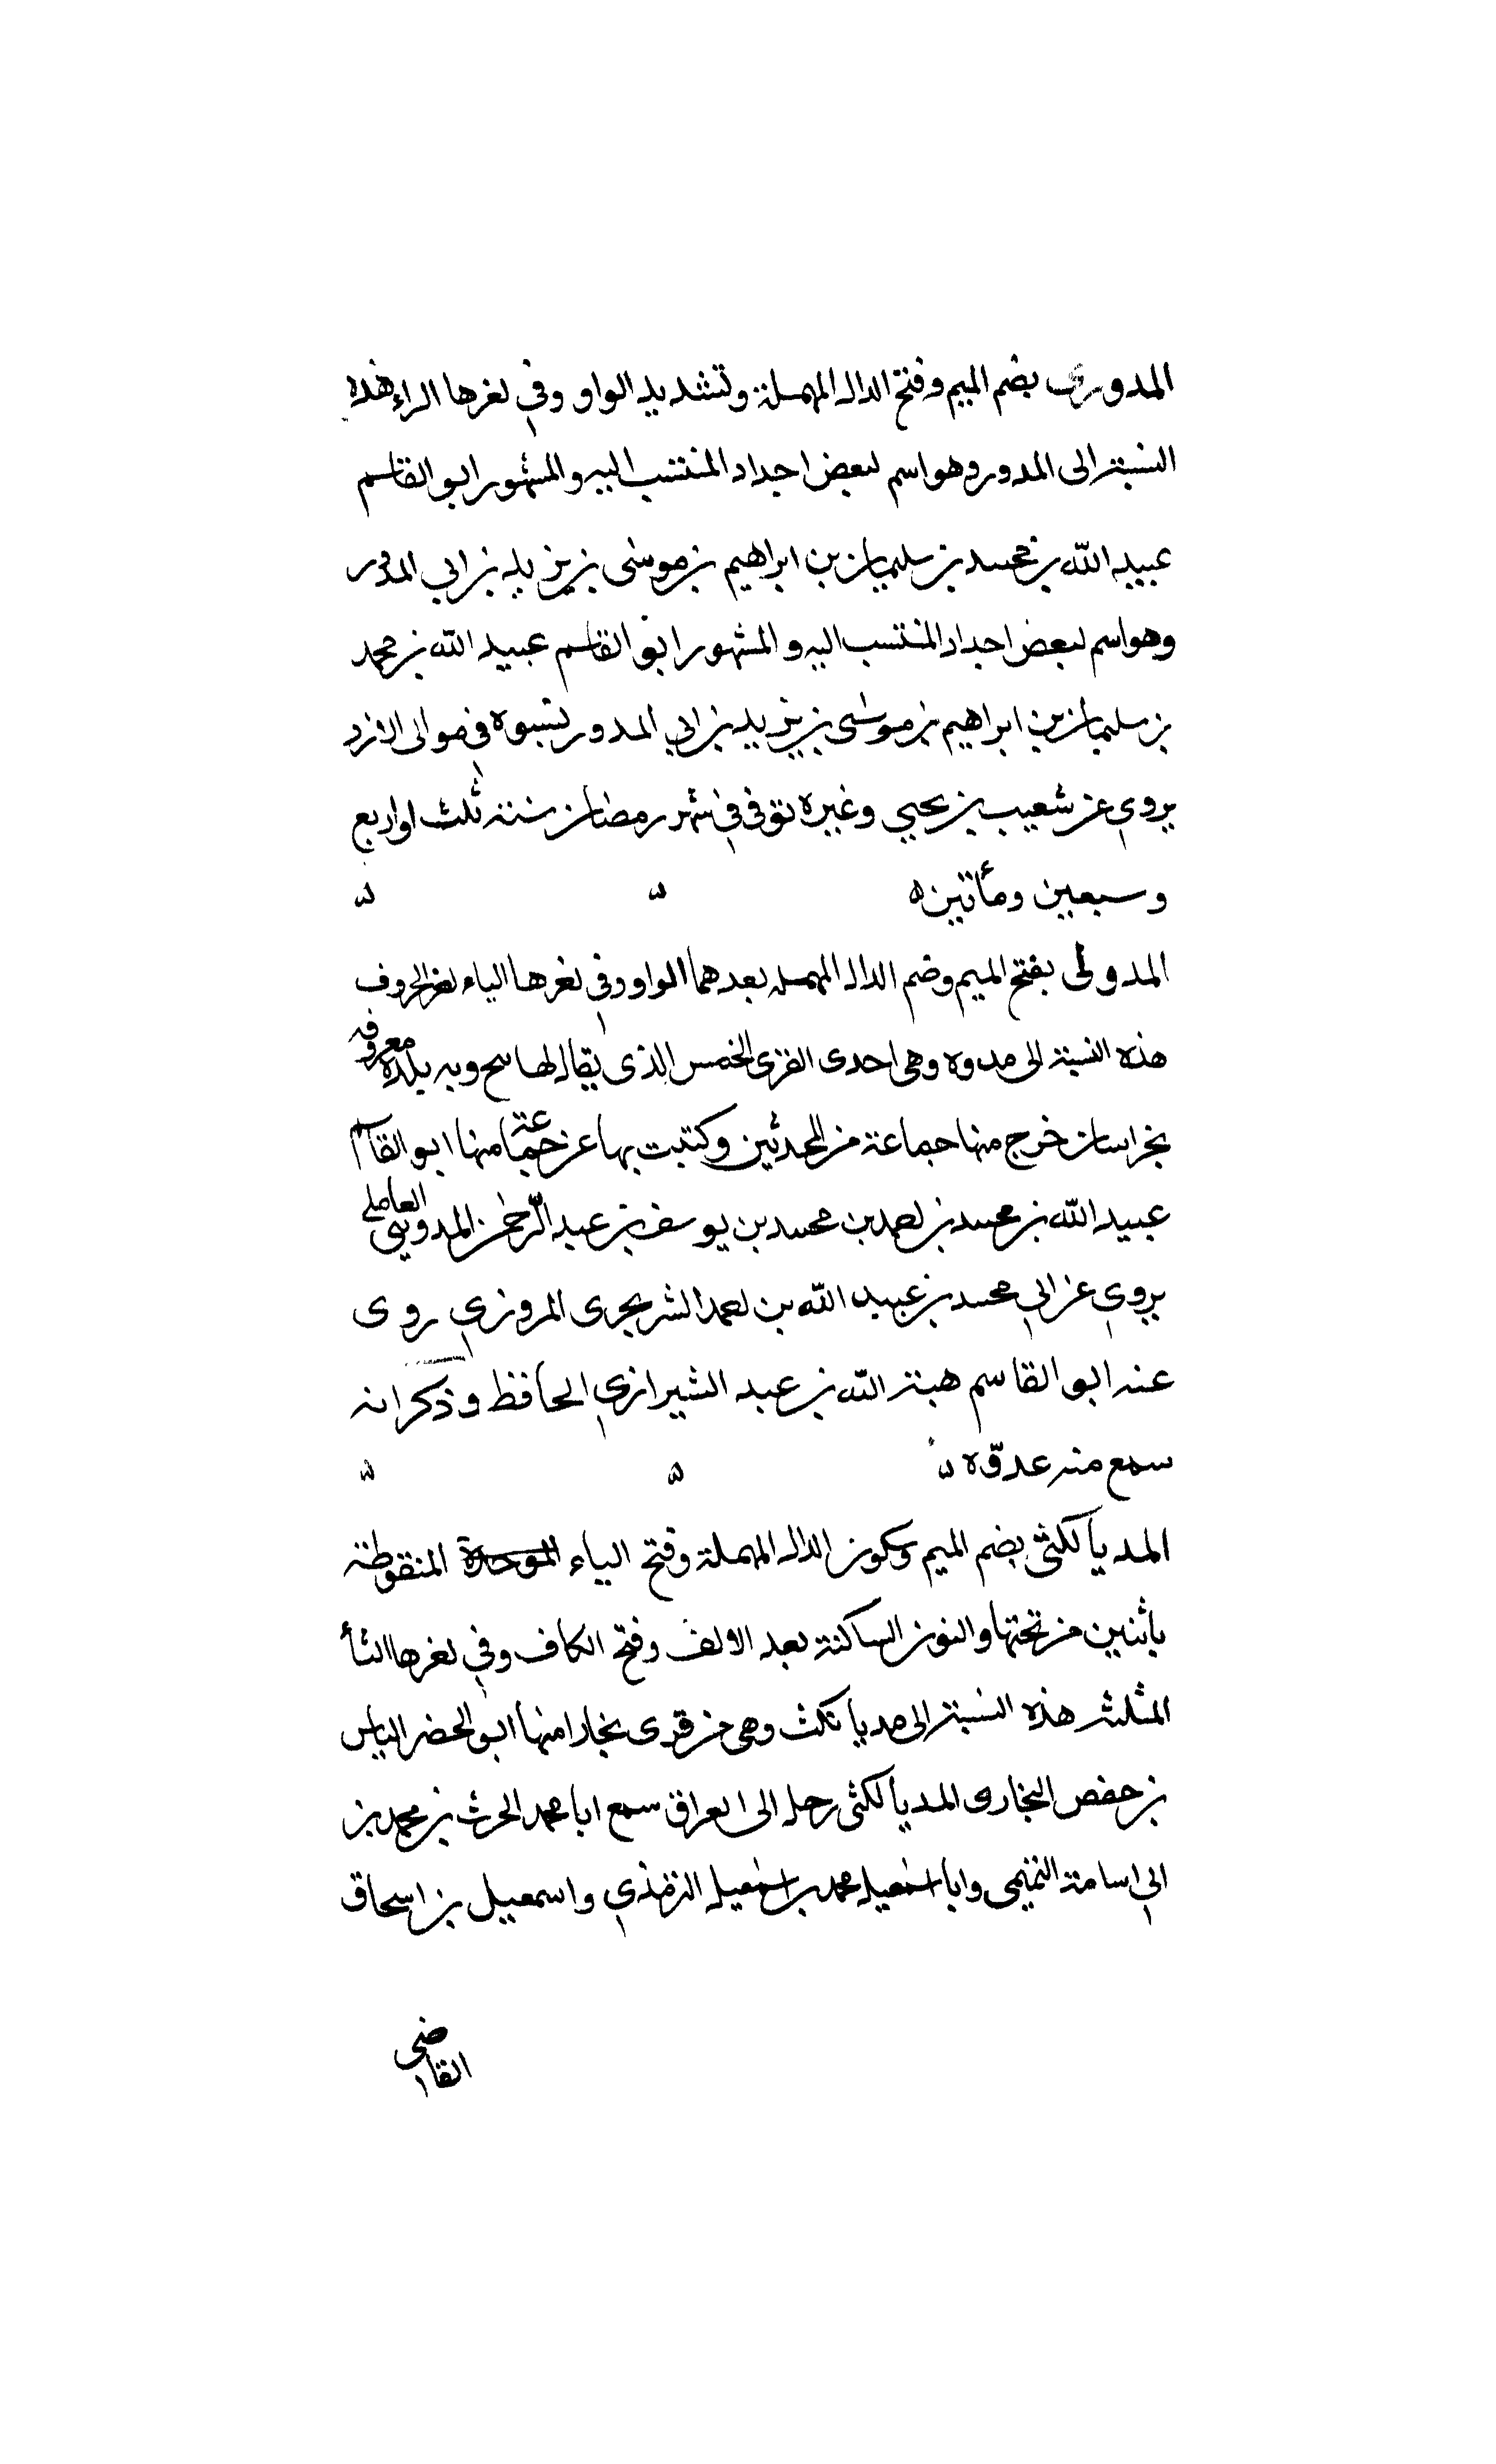 المدورى بضم الميم وفتح الدال المهملة وتشديد الواو وفي اخرها الراء هذه
النسبة الى المدور وهو اسم لبعض اجداد المنتسب اليه والمشهور ابو القاسم
عبيد الله بن محمد بن سليمان بن ابراهيم بن موسى بن يزيد بن ابي المدور
وهو اسم لبعض اجداد المنتسب اليه والمشهور ابو القاسم عبيد الله بن محمد
بن سليمان بن ابراهيم بن موسى بن يزيد بن ابي المدور نسبوه في موالى الازد
يروي عن شعيب بن يحيي وغيره توفى في شهر رمضان سنة ثلث او اربع
وسبعين ومأتين ه
المدولى بفتح الميم وضم الدال المهمله بعدهما الواو وفي اخرها الياء اخر الحروف
هذه النسبة الى مدوه وهى احدى القرى الخمس الذى يقال لها بلده معروفه
بخراسان خرج منها جماعة من المحدثين وكتبت بها عن جماعة منها ابو القاسم
عبيد الله بن محمد بن احمد بن محمد بن يوسف بن عبد الرحمن المدويى العاملى
يروي عن ابي محمد بن عبيد الله بن احمد الشريجرى المروزي روى
عنه ابو القاسم هبة الله بن عبد الشيرازي الحافظ وذكر انه
سمع منه عدقه
المديالكثى بضم الميم وسكون الدال المهملة وفتح الياء الموحدة المنقوطة
باثنين من تحتها والنون الساكنة بعد الالف وفتح الكاف وفي اخرها الثأ
المثلثه هذه النسبة الى مديانكث وهى من قرى بخارا منها ابو الخضر الياس
بن حفص البخارى المديالكثى رحل الى العراق سمع ابا محمد الحرث بن محمد بن
ابي اسامة التميمى وابا اسمعيل محمد بن اسمعيل الترمذي واسمعيل بن اسحاق
القاضى